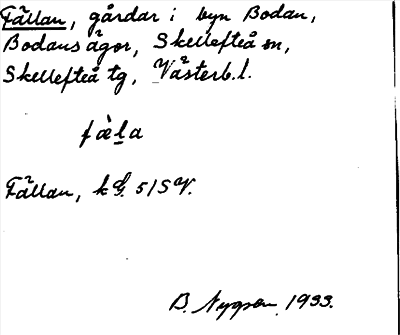 Fällan, gårdar i byn Bodan,
Bodans ägor, Skellefteå sn,
Skellefteå tg, Västerb. l.
fæ̀l̠a
Fällan, k G. 51SV.
B. Nygren 1933.